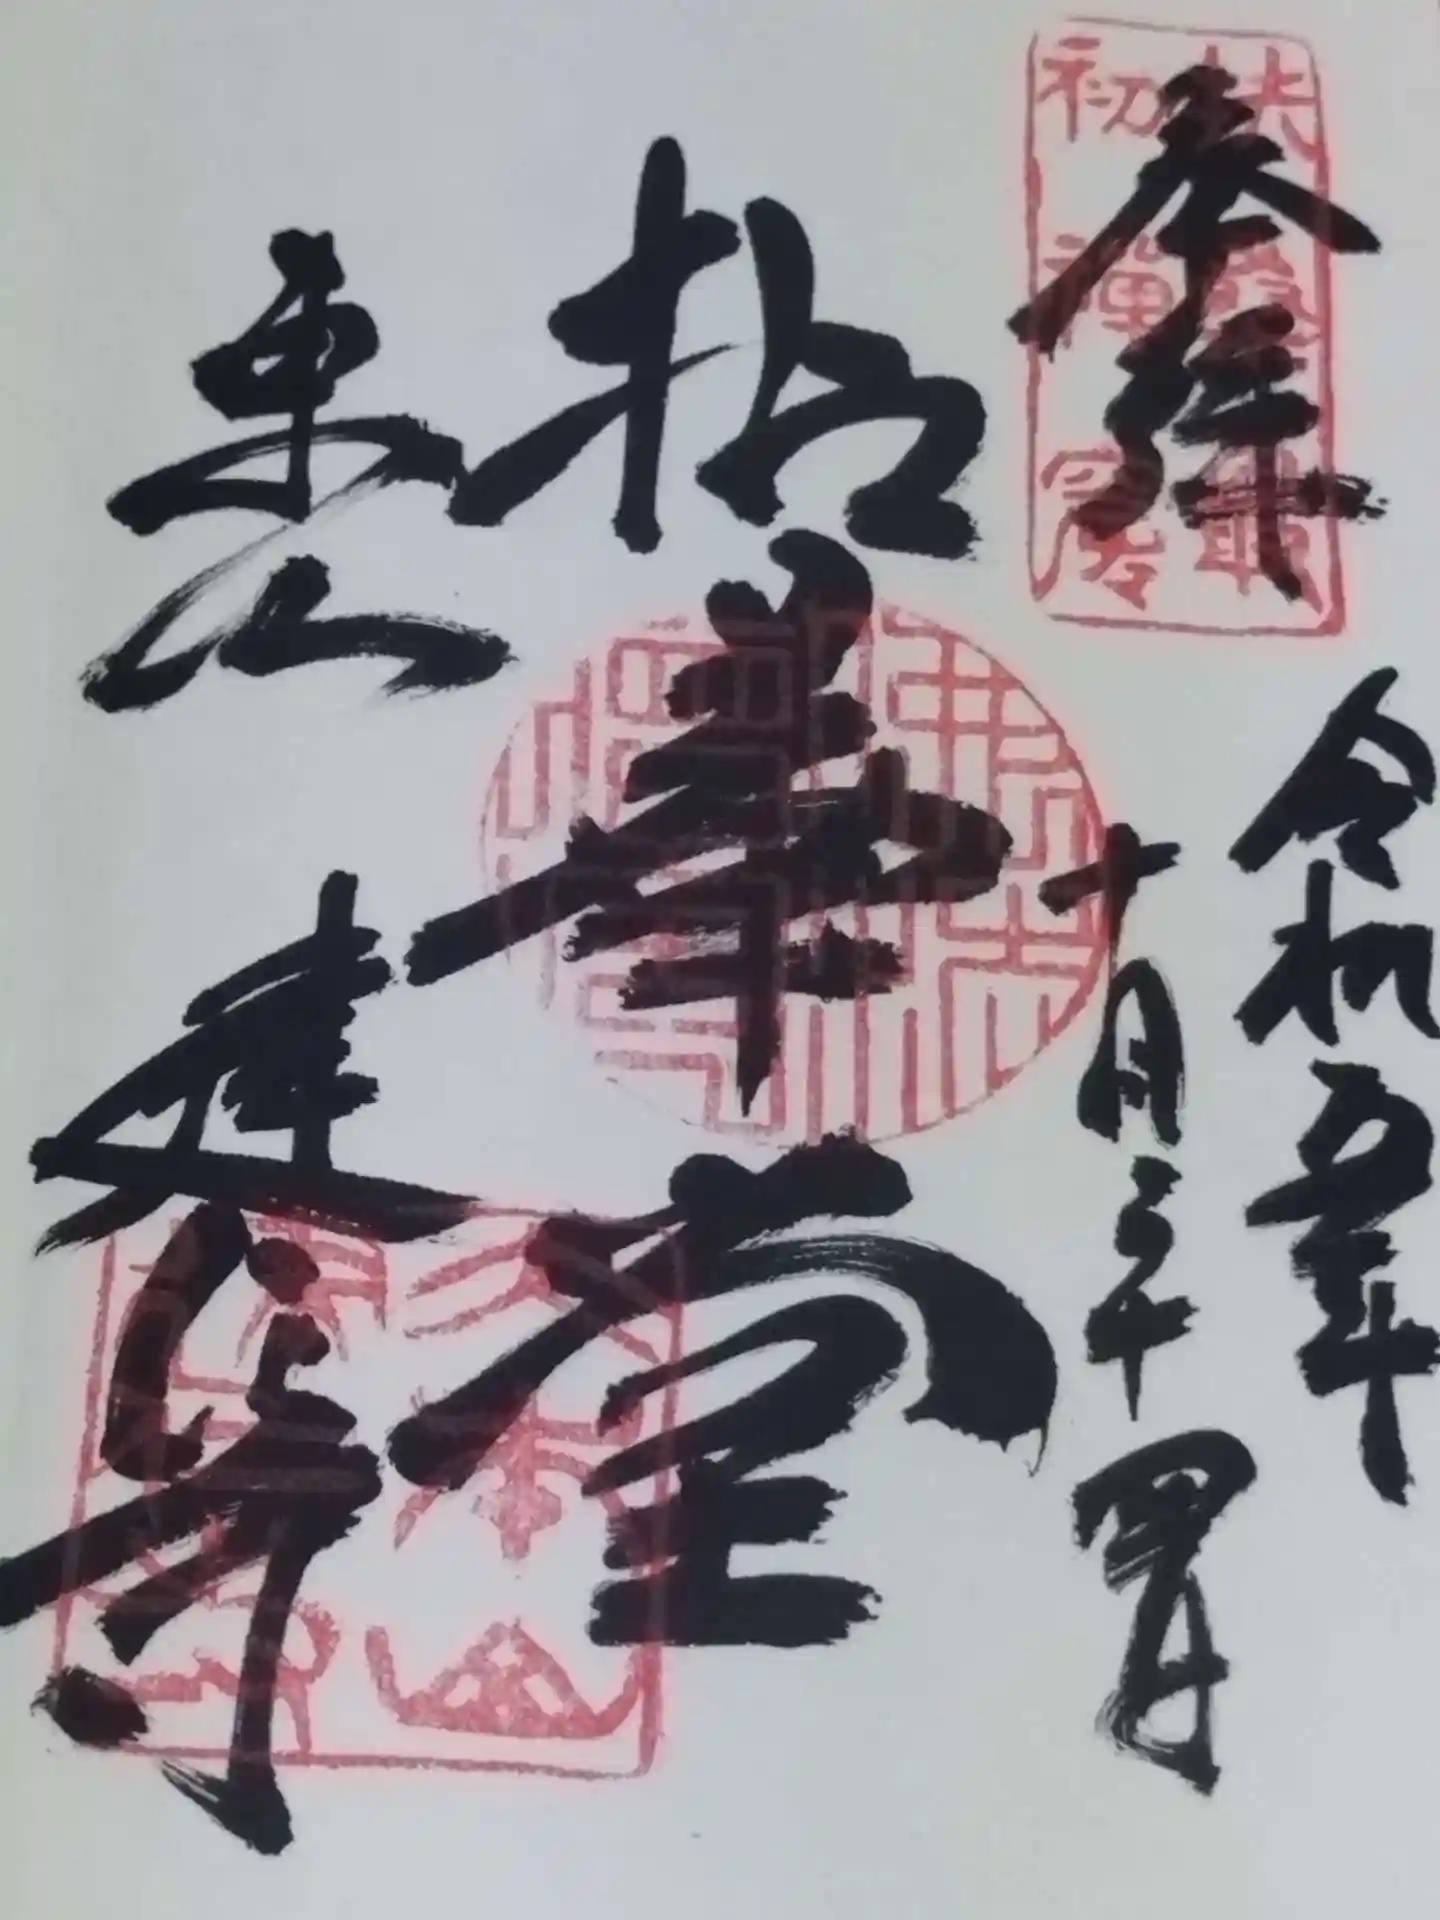 奉拝
扶桑最
初禅窟
令和五年
十月二十四日
拈華堂
東山
建仁寺